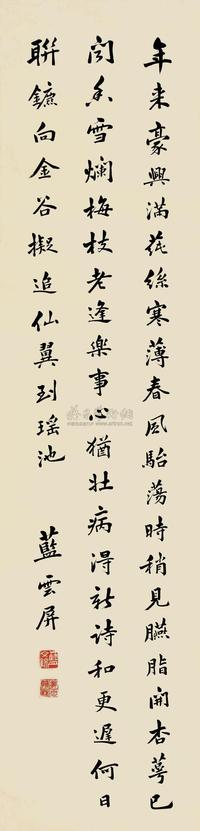 年来豪興滿花絲寒薄春風駘蕩時稍見臙脂開杏萼已
聞香雪爛梅枝老逢樂事心猶壯病得新詩和更遲何日
聯鑣向金谷擬追仙翼到瑤池
藍雲屏